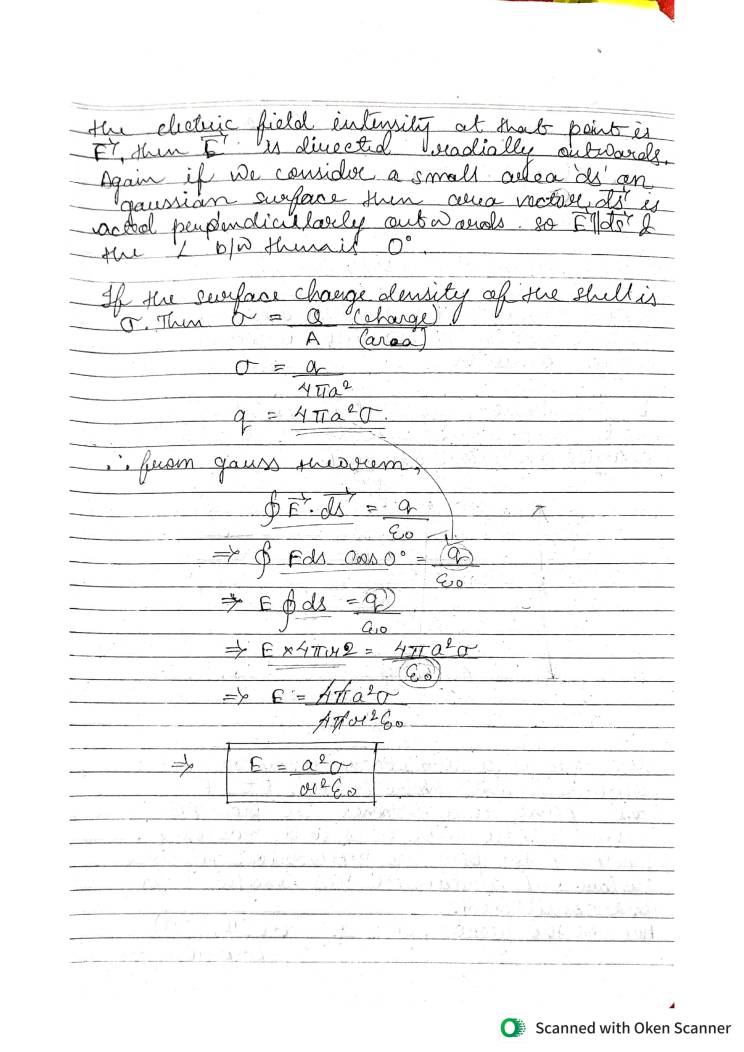 the electric field intensity at that point is
E⃗, then E⃗ is directed radially outwards.
Again if we consider a small area 'ds' on
gaussian surface then area vector ds⃗ is
acted perpendicularly outwards. so E⃗||ds⃗ &
the ∠ b/w them is 0°.
If the surface charge density of the shell is
σ. Then σ = Q/A (charge)/(area)
σ = q/4πa²
q = 4πa²σ.
∴ from gauss theorem,
∮ E⃗·ds⃗ = q/ε₀
⇒ ∮ Eds cos 0° = q/ε₀
⇒ E ∮ ds = q/ε₀
⇒ E × 4πr2 = 4πa²σ/ε₀
⇒ E = 4πa²σ/4πr²ε₀
⇒ E = a²σ/r²ε₀
Scanned with Oken Scanner